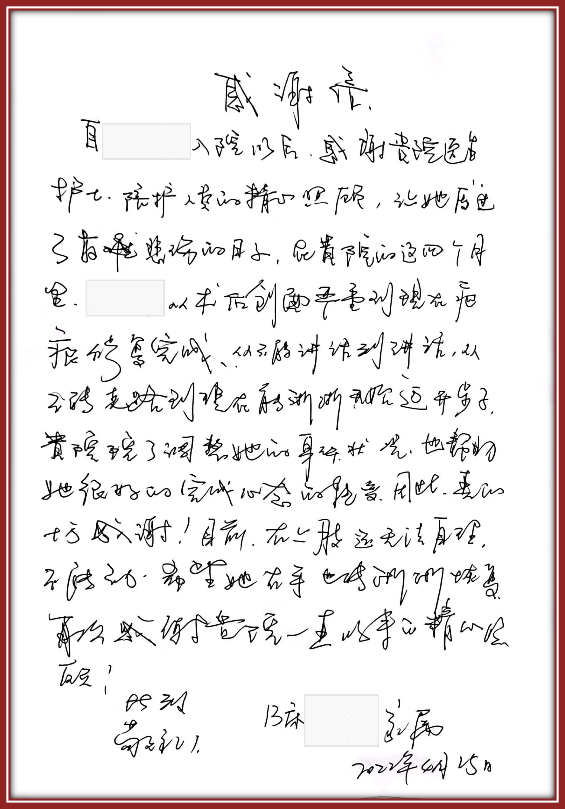 感谢信.
自 入院以后.感谢贵院医生
护士.陪护人员的精心照顾,让她度过
了 悲伤的日子,在贵院的这四个月
里. 从术后创面严重到现在疤
痕修复完成、从不能讲话到讲话,从
不能走路到现在能渐渐开始迈开步子.
贵院除了调整她的身体状况.也帮助
她很好的完成心态的转变.因此.真的
十分感谢!目前.右上肢还无法自理,
不能动.希望她右手也能渐渐恢复.
再次感谢贵院一直以来的精心照
顾!
此致
敬礼!
13床 家属
2022年4月25日